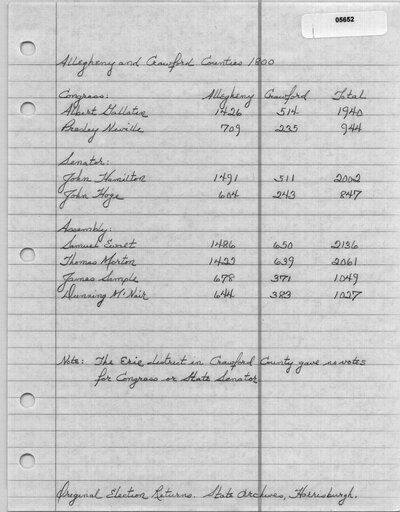 05652
Allegheny and Crawford Counties 1800
Congress: Allegheny Crawford Total
Albert Gallatin 1426 514 1940
Presley Neville 709 235 944
Senator:
John Hamilton 1491 511 2002
John Hoge 604 243 847
Assembly:
Samuel Ewalt 1486 650 2136
Thomas Morton 1422 639 2061
James Semple 678 371 1049
Dunning McNair 644 383 1027
Note: The Erie district in Crawford County gave no votes
for Congress or State Senator
Original Election Returns. State Archives, Harrisburgh.